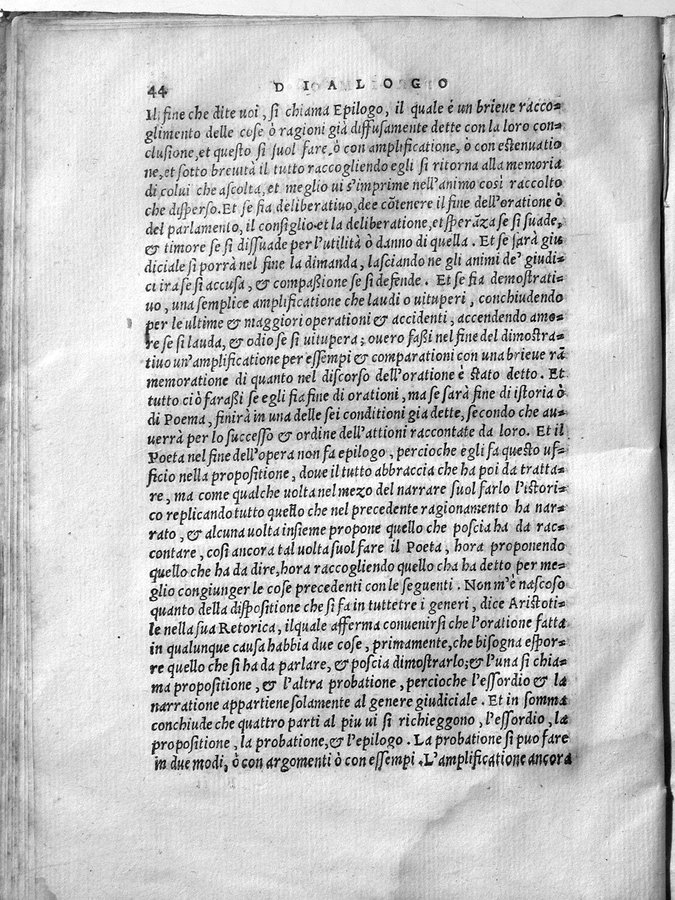 44 DIALOGO
Il fine che dite uoi, si chiama Epilogo, il quale è un brieue racco=
glimento delle cose ò ragioni già diffusamente dette con la loro con=
clusione, et questo si suol fare, ò con amplificatione, ò con estenuatio
ne, et sotto breuità il tutto raccogliendo egli si ritorna alla memoria
di colui che ascolta, et meglio ui s'imprime nell'animo cosi raccolto
che disperso. Et se fia deliberatiuo, dee cōtenere il fine dell'oratione ò
del parlamento, il consiglio et la deliberatione, et sperāza se si suade,
& timore se si dissuade per l'utilità ò danno di quella. Et se sarà giu
diciale si porrà nel fine la dimanda, lasciando ne gli animi de' giudi=
ci ira se si accusa, & compassione se si defende. Et se fia demostrati=
uo, una semplice amplificatione che laudi o uituperi, conchiudendo
per le ultime & maggiori operationi & accidenti, accendendo amo=
re se si lauda, & odio se si uitupera; ouero fassi nel fine del dimostra=
tiuo un'amplificatione per essempi & comparationi con una brieue rā
memoratione di quanto nel discorso dell'oratione è stato detto. Et
tutto ciò farassi se egli fia fine di orationi, ma se sarà fine di istoria ò
di Poema, finirà in una delle sei conditioni gia dette, secondo che au=
uerrà per lo successo & ordine dell'attioni raccontate da loro. Et il
Poeta nel fine dell'opera non fa epilogo, percioche egli fa questo uf=
ficio nella propositione, doue il tutto abbraccia che ha poi da tratta=
re, ma come qualche uolta nel mezo del narrare suol farlo l'istori=
co replicando tutto quello che nel precedente ragionamento ha nar=
rato, & alcuna uolta insieme propone quello che poscia ha da rac=
contare, cosi ancora tal uolta suol fare il Poeta, hora proponendo
quello che ha da dire, hora raccogliendo quello cha ha detto per me=
glio congiunger le cose precedenti con le seguenti. Non m'è nascoso
quanto della dispositione che si fa in tutte tre i generi, dice Aristoti=
le nella sua Retorica, il quale afferma conuenirsi che l'oratione fatta
in qualunque causa habbia due cose, primamente, che bisogna espor=
re quello che si ha da parlare, & poscia dimostrarlo; & l'una si chia=
ma propositione, & l'altra probatione, percioche l'essordio & la
narratione appartiene solamente al genere giudiciale. Et in somma
conchiude che quattro parti al piu ui si richieggono, l'essordio, la
propositione, la probatione, & l'epilogo. La probatione si puo fare
in due modi, ò con argomenti ò con essempi. L'amplificatione ancora